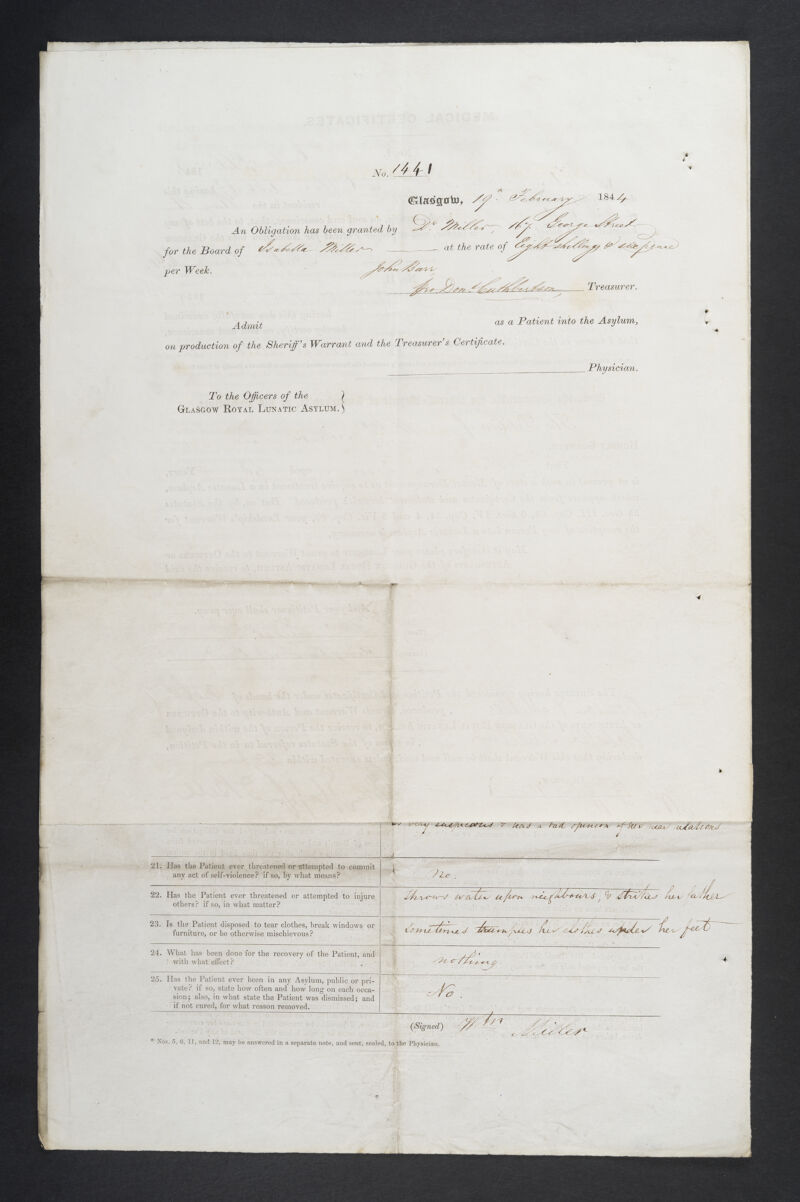 No. 1441
Glasgow, 19th February 1844
An Obligation has been granted by Dr Miller, 167 George Street
for the Board of Isabella Miller at the rate of Eight shillings & sixpence
per Week. John Barr
pro Dond Cuthbertson, Treasurer.
Admit as a Patient into the Asylum,
on production of the Sheriff's Warrant and the Treasurer's Certificate.
Physician.
To the Officers of the
Glasgow Royal Lunatic Asylum.
is very suspicious & has a bad opinion of her near relations
21. Has the Patient ever threatened or attempted to commit
any act of self-violence? if so, by what means?
No.
22. Has the Patient ever threatened or attempted to injure
others? if so, in what matter?
throws water upon neighbours, & strikes her father
23. Is the Patient disposed to tear clothes, break windows or
furniture, or be otherwise mischievous?
Sometimes trampies her clothes under her feet
24. What has been done for the recovery of the Patient, and
with what effect?
nothing
25. Has the Patient ever been in any Asylum, public or pri-
vate? if so, state how often and how long on each occa-
sion; also, in what state the Patient was dismissed; and
if not cured, for what reason removed.
No.
(Signed) Wm Miller
* Nos. 5, 6, 11, and 12, may be answered in a separate note, and sent, sealed, to the Physician.